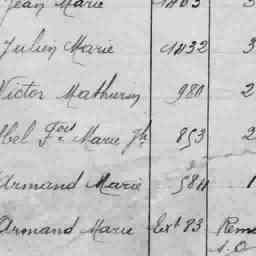 Jean Marie 1403 3
Julien Marie 1432 3
Victor Mathurin 980 2
Abel Fois Marie Jh 853 2
Armand Marie 5811 1
Armand Marie Ext 83 Rem
S.O